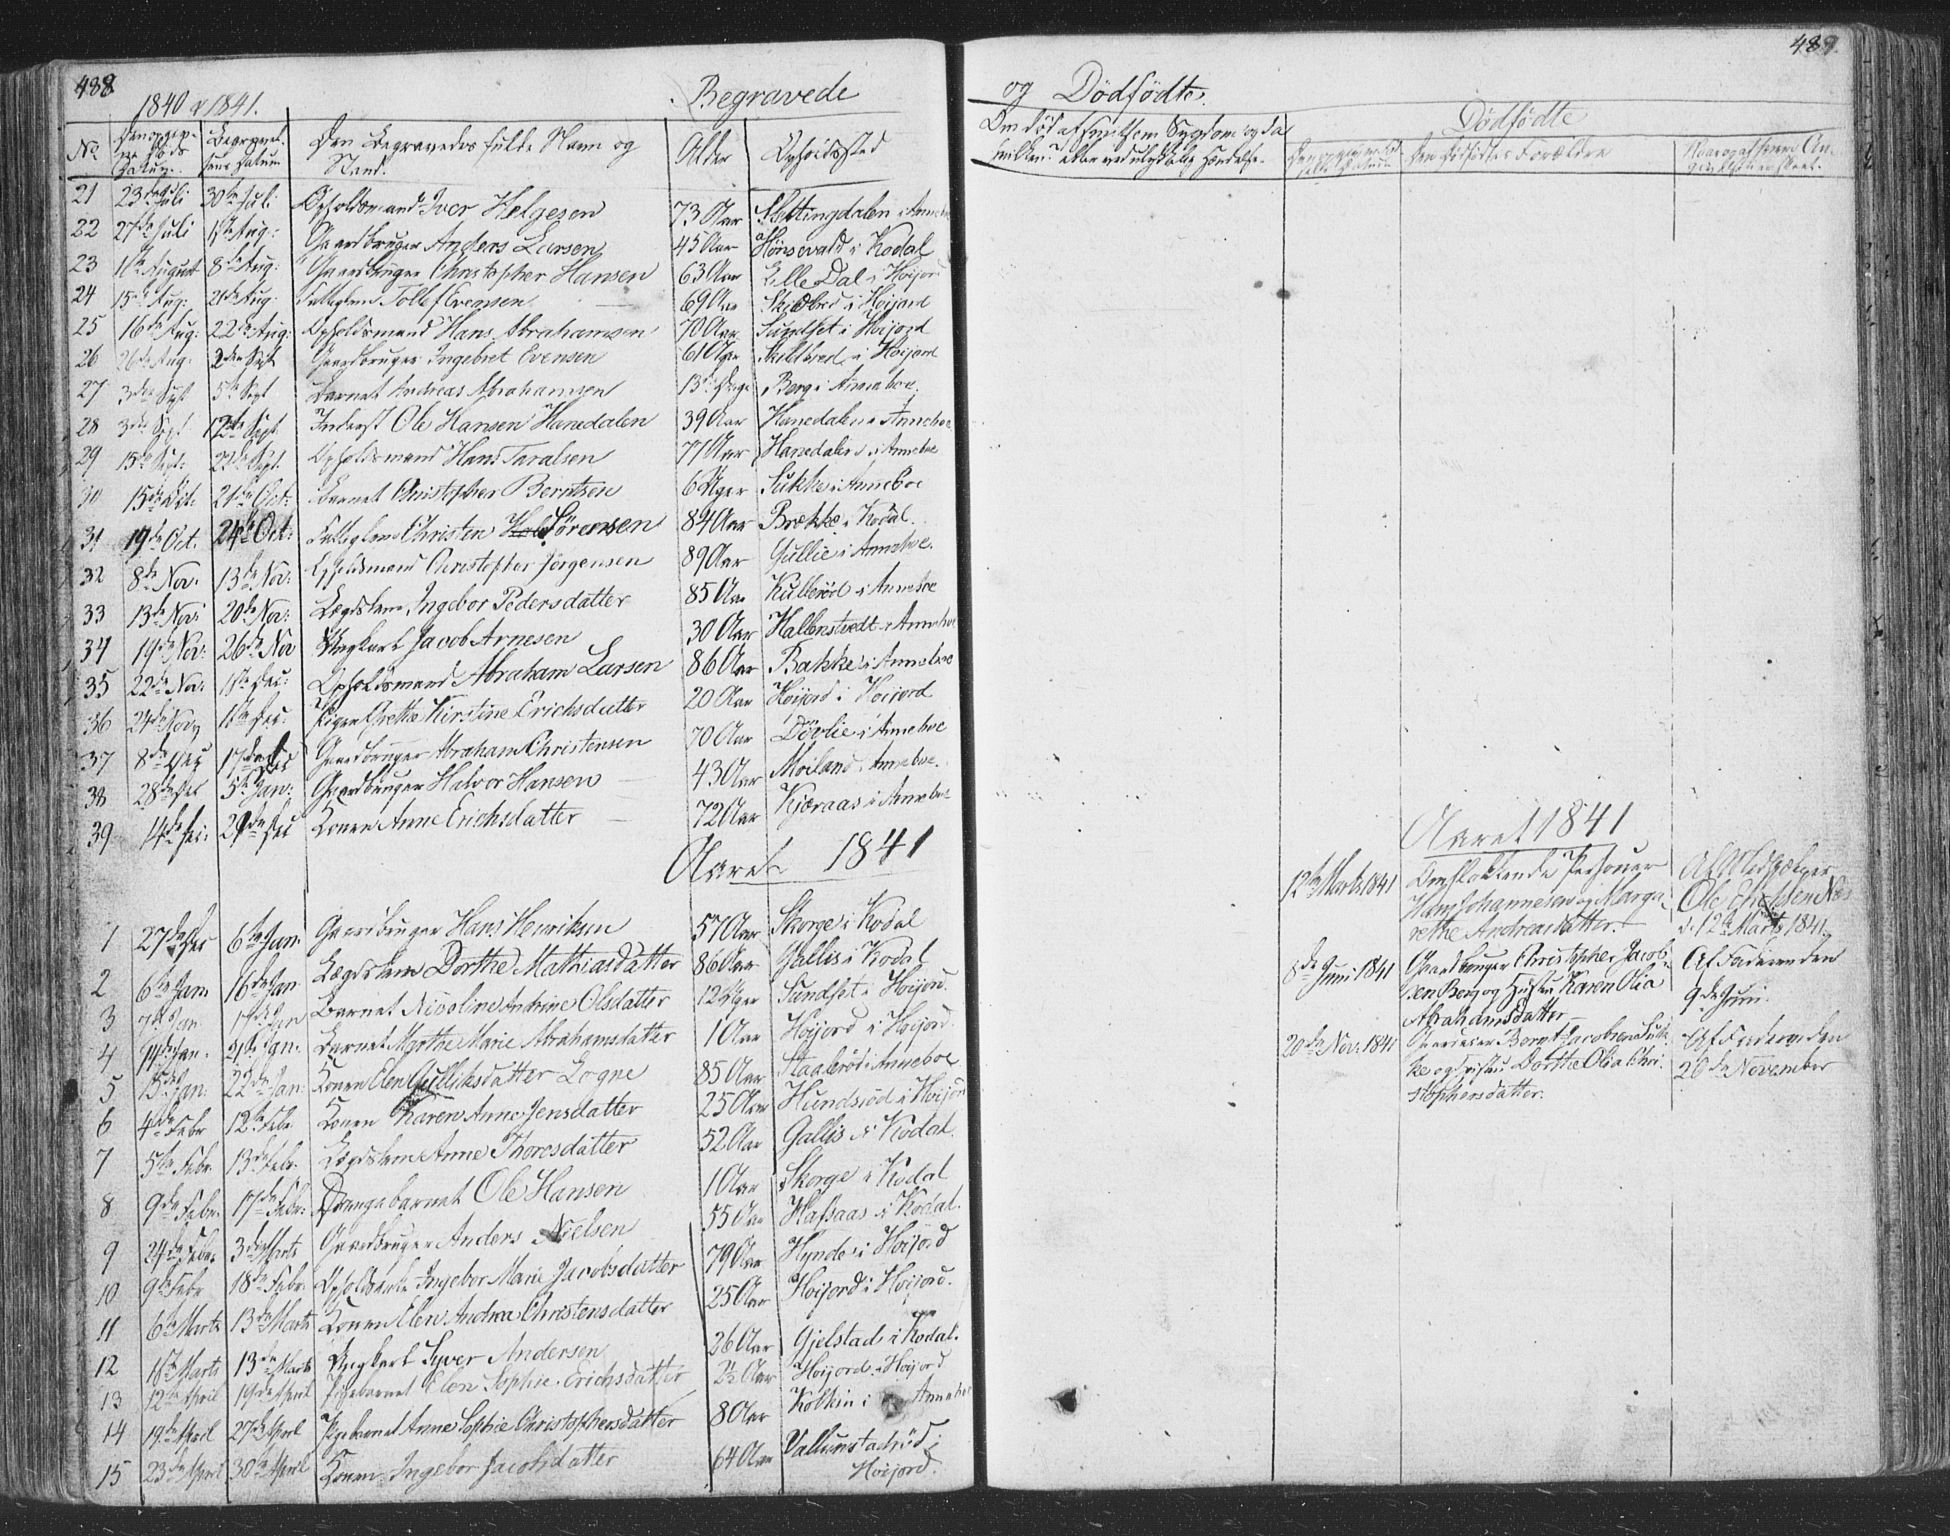 488
1840 & 1841. Begravede
No. Den opgivne Døds Datum. Begravelsens Datum Den Begravedes fulde Navn og Stand. Alder Opholdssted
21 23de Juli 30te Juli Opholdsmand Iver Helgesen 73 Aar Slettingdalen i Anneboe
22 27de Juli 1ste Aug: Gaardbruger Anders Larsen 45 Aar Hönsevald i Kodal
23 1ste August 8de Aug: Gaardbruger Christopher Hansen 63 Aar Elle Dal i Høijord
24 15de Aug: 21de Aug: Tollef Evensen 69 Aar i Høijord
25 16de Aug: 22de Aug: Opholdsmand Hans Abrahamsen 70 Aar Sundset i Høijord
26 26de Aug: 2den Sept Gaardbruger Ingebret Evensen 61 Aar i Høijord
27 3die Sept 5te Sept Barnet Andreas Abrahamsen 13 Dage Berg i Anneboe.
28 3die Sept 12te Sept. Inderst Ole Hansen Hanedalen 39 Aar Hanedalen i Anneboe
29 15de Sept: 22de Sept. Opholdsmand Hans Taralsen 77 Aar Hanedalen i Anneboe
30 15de Oct: 21de Oct: Barnet Christopher Berntsen 6 Uger Sukke i Anneboe
31 19de Oct. 24de Oct: Christen Sörensen 84 Aar Brække i Kodal.
32 8de Nov: 13de Nov: Opholdsmand Christopher Jörgensen 89 Aar Gullie i Anneboe.
33 13de Nov: 20de Nov: Lægdslem Ingebor Pedersdatter 85 Aar Kullerød i Anneboe
34 19de Nov: 26de Nov Ungkarl Jacob Arnesen 30 Aar Hallenstvedt i Anneboe
35 22de Nov: 1ste Dec: Opholdsmand Abraham Larsen 86 Aar Bakke i Anneboe
36 24de Nov 1ste Dec: Pigen Grethe Kirstine Erichsdatter 20 Aar Høijord i Høijord
37 8de Dec 17de Dec Gaardbruger Abraham Christensen 70 Aar Dövlie i Anneboe
38 28de Dec 5te Jan: Gaardbruger Halvor Hansen 43 Aar Möiland i Anneboe.
39 14de Dec: 29de Dec Konen Anne Erichsdatter 72 Aar Kjæraas i Anneboe
Aaret 1841
1 27de Dec 6te Jan. Gaardbruger Hans Henriksen 57 Aar Skorge i Kodal
2 6te Jan 16de Jan Lægdslem Dorthe Mathiasdatter 86 Aar Gallis i Kodal
3 7de Jan 17de Jan Barnet Nicoline Andrine Olsdatter 12 Uger Sundset i Høijord.
4 14de Jan. 21de Jan. Barnet Myrthe Marie Abrahamsdatter 1 Aar Høijord i Høijord.
5 15de Jan. 22de Jan. Konen Elen Gulliksdatter Logne 85 Aar Staaleröd i Anneboe
6 4de Febr 12te Febr Konen Karen Anne Jensdatter 25 Aar Hundsröd i Høijord
7 5te Febr. 13de Febr. Lægdslem Anne Thoresdatter 52 Aar Gallis i Kodal.
8 9de Febr. 17de Febr: Drengebarnet Ole Hansen 1 Aar Skorge i Kodal
9 24de Febr 3die Marts Gaardbruger Anders Nielsen 55 Aar Hafsaas i Kodal.
10 9de Febr 18de Febr. Ingebor Marie Jacobsdatter 79 Aar Hynde i Høijord
11 6te Marts 13de Marts Konen Elen Andrea Christensdatter 25 Aar Høijord i Høijord.
12 1ste Marts 13de Marts Ungkarl Syver Andersen 26 Aar Gjelstad i Kodal.
13 12te April 19de April Pigebarnet Elen Sophie Erichsdatter 2½ Aar Høijord i Høijord
14 19de April 27de April Pigebarnet Anne Sophie Christophersdatter 8 Aar i Anneboe
15 23de April 30te April Konen Ingebor Jacobsdatter 64 Aar i
Høijord.
489.
og Dödfödte.
Om död af smitsom Sygdom og da hvilken? eller ved ulykkelig Hændelse.
Dödfödte
Den Dödfödtes Forældre
Aaret 1841
12te Marts 1841 Omflakkende Personer
Hans Johannesen og Margarethe Andreasdatter.
Ole Erichsen Næs
d. 12te Marts 1841.
8de Juni 1841 Gaardbruger Christopher Jacobsen Berg og Hustru Karen Olia Abrahamsdatter
Af Faderen den
9de Juni.
20de Nov: 1841 Bernt Jacobsen Sukke og Hustru Dorthe Olia Christophersdatter.
Af Faderen den
20de November